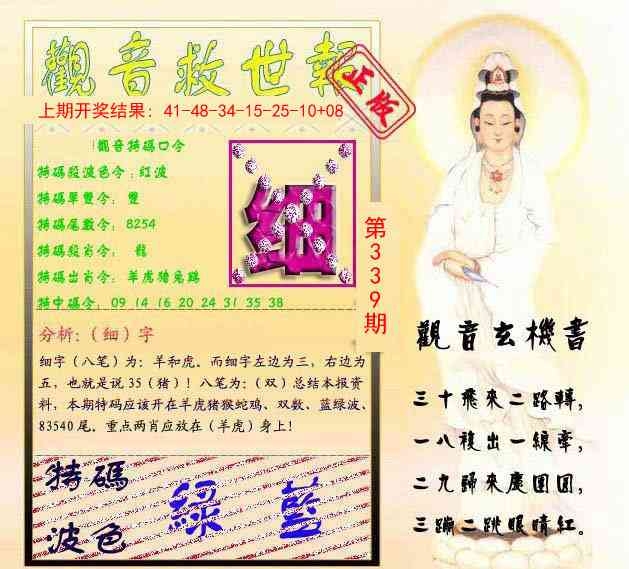 觀音救世報
正版
上期开奖结果：41-48-34-15-25-10+08
觀音特碼口令
特碼段波色令：红波
特碼單雙令： 雙
特碼尾數令： 8254
特碼段肖令： 龍
特碼出肖令： 羊虎猪兔鷄
特中碼令： 09 14 16 20 24 31 35 38
细
第339期
分析：（细）字
细字（八笔）为：羊和虎。而细字左边为三，右边为
五，也就是说35（猪）！八笔为：（双）总结本报资
料，本期特码应该开在羊虎猪猴蛇鸡、双数、蓝绿波、
83540尾。重点两肖应放在（羊虎）身上！
特碼
波色
綠 藍
觀音玄機書
三十飛來二路轉，
一八複出一線牽，
二九歸來慶團圓，
三蹦二跳眼睛紅。